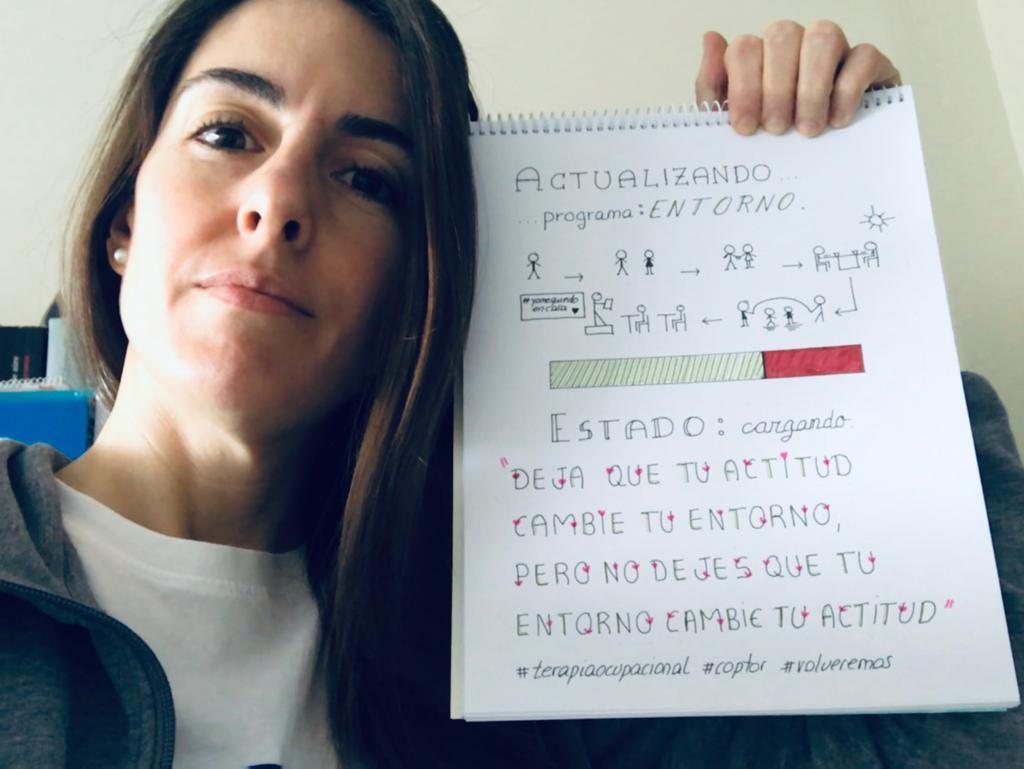 ACTUALIZANDO...
...programa: ENTORNO.
#yomequedo
encasa
ESTADO: cargando.
"DEJA QUE TU ACTITUD
CAMBIE TU ENTORNO,
PERO NO DEJES QUE TU
ENTORNO CAMBIE TU ACTITUD"
#terapiaocupacional #coptor #volveremos